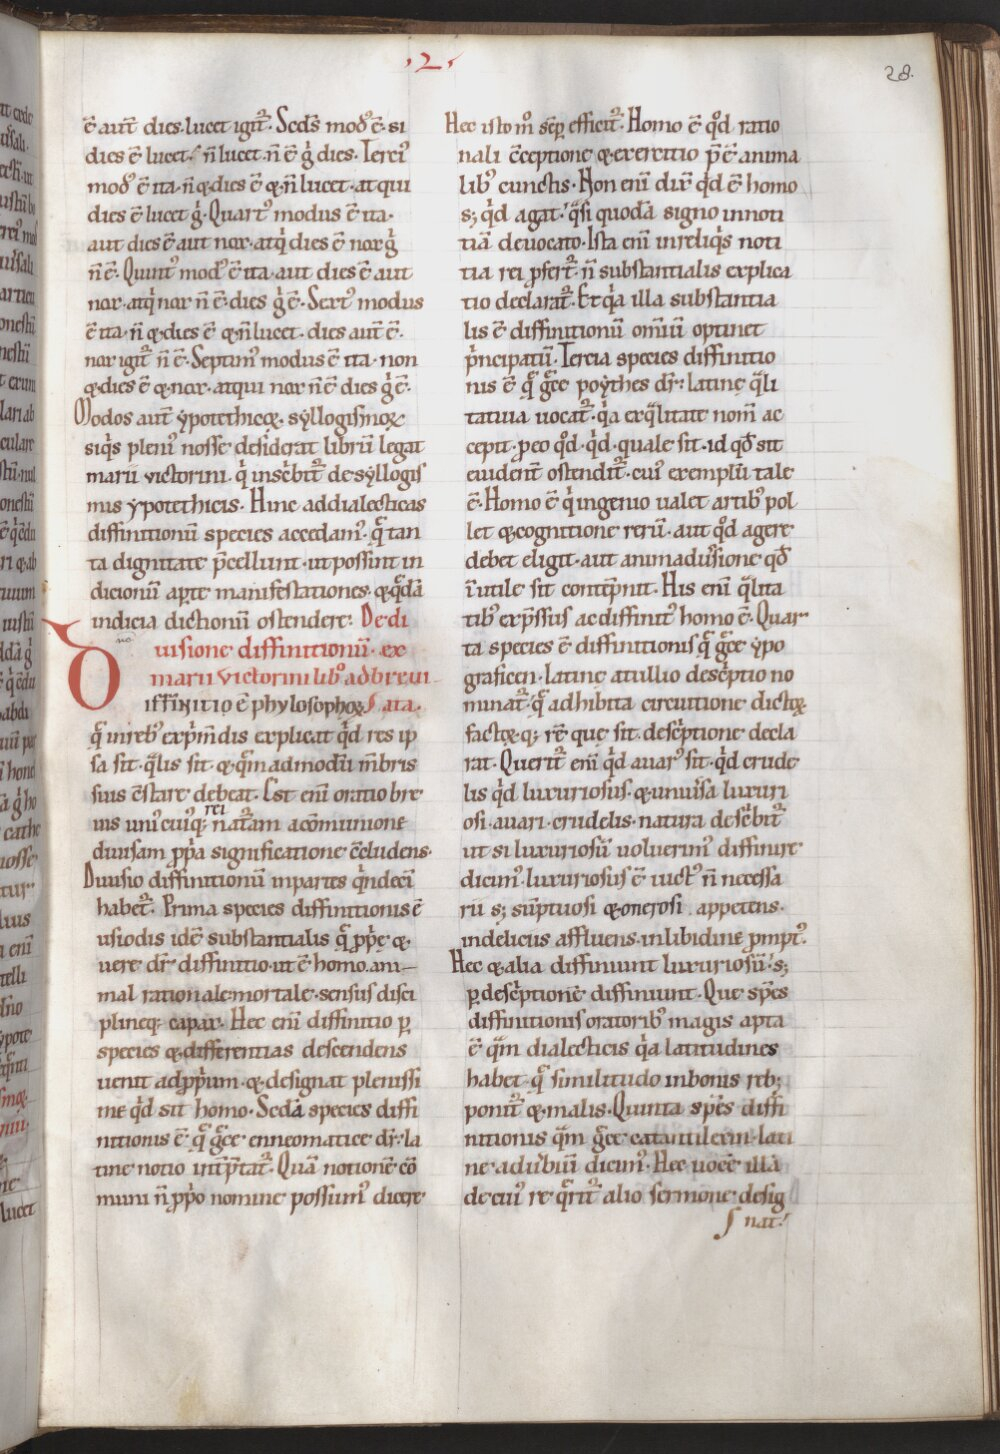 ·2·
28.
ē aut̄ dies. lucet igit᷑. Sc̄ds mod᷒ ē. si
dies ē lucet. n̄ lucet. n̄ ē g̊ dies. Terci᷒
mod᷒ ē ita. n̄ & dies ē & n̄ lucet. atqui
dies ē lucet g̊. Quart᷒ modus ē ita.
aut dies ē aut nox. atq̇ dies ē nox g̊
n̄ ē. Quint᷒ mod᷒ ē ita. aut dies ē aut
nox. atq̇ nox n̄ ē. dies g̊ ē. Sext᷒ modus
ē ita. n̄ & dies ē & n̄ lucet. dies aut̄ ē.
nox igit᷑ n̄ ē. Septim᷒ modus ē ita. non
& dies ē & nox. atqui nox n̄ ē dies g̊ ē.
Modos aut̄ ẏpotethicoꝝ. sẏllogismoꝝ
siq̇s pleni᷒ nosse desiderat librū legat
marii victorini. q̇ insċbit᷑ de sẏllogis
mis ẏpotethicis. Hinc ad dialecticas
diffinitionū species accedam᷒. q̄ tan
ta dignitate p̄cellunt. ut possint in
dicionū ap̱te manifestationes. & q̄dā
indicia dictionū ostendere. De di
uisione diffinitionū. ex
marii victorini lib᷒o adbreui
Diffinitio ē phylosophoꝝ ata.
q̄ in reb᷒ exp̄mdis explicat q̇d res ip
sa sit. q̄lis sit. & q̄madmodū m̄bris
suis c̄stare debeat. Est eni᷒ oratio bre
uis uni᷒cuiq; rei nat᷑am a cōmunione
diuisam ꝓp̄a significatione c̄cludens.
Diuisio diffinitionū in partes q̇ndeci᷒
habet᷑. Prima species diffinitionis ē
usiodis id ē substantialis q̄ ꝓp̄e &
uere dr᷑ diffinitio. ut ē homo. ani
mal rationale mortale. sensus disci
plineq; capax. Hec eni᷒ diffinitio ꝑ
species & differentias descendens
uenit ad ꝓp̄um. & designat plenissi
me q̇d sit homo. Sc̄da species diffi
nitionis ē. q̄ g̅ce enneomatice dr᷑. la
tine notio int̄p̄tat᷑. Quā notionē cō
muni n̄ ꝓp̄o nomine possum᷒ dicere
Hec isto m᷒ semꝑ efficit᷑. Homo ē q᷒d ratio
nali c̄ceptione & exercitio p̄ē anima
lib᷒ cunctis. Non eni᷒ dix̄ q̇d ē homo
s; q̇d agat. q̄si quodā signo in noti
tiā deuocato. Ista eni᷒ in reliq̇s noti
tia rei ꝓfert᷑. n̄ substantialis explica
tio declarat᷑. Et q̇a illa substantia
lis ē diffinitionū omīū optinet
ṗncipatū. Tercia species diffinitio
nis ē q̄ g̅ce poẏthes dr᷑. latine q̄li
tatiua uocat᷑. q̇a ex q̄litate nom̄ ac
cepit. ꝓ eo q᷒d. q̇d. quale sit. id q᷒d sit
euident̄ ostendit᷑. cui᷒ exemplū tale
ē. Homo ē q̇ ingenio ualet artib᷒ pol
let & cognitione rerū. aut q᷒d agere
debet eligit. aut animadu̇sione q᷒d
īutile sit contēpnit. His eni᷒ q̄lita
tib᷒ exp̄ssus ac diffinit᷒ homo ē. Quar
ta species ē diffinitionis q̄ g̅ce ẏpo
graficen. latine a tullio desċptio no
minat᷑. q̄ adhibita circuitione dictoꝝ
factoꝝq; rē que sit. desċptione decla
rat. Querit᷑ eni᷒ q̇d auar᷒ sit. q̇d crude
lis q̇d luxuriosus. & uniu̇sa luxuri
osi. auari. crudelis. natura desċbit᷑
ut si luxuriosū uoluerim᷒ diffinire
dicim᷒. luxuriosus ē uict᷒ n̄ necessa
rii s; sūptuosi & onerosi appetens.
in deliciis affluens. in libidine ꝓmpt᷒.
Hec & alia diffiniunt luxuriosū. s;
ꝑ desċptionē diffiniunt. Que sp̄es
diffinitionis oratorib᷒ magis apta
ē q̄m dialecticis q̇a latitudines
habet. q̄ similitudo in bonis reb;
ponit᷑ & malis. Quinta sp̄es diffi
nitionis q̄m g̅ce catantilexin. lati
ne adu̇biū dicim᷒. Hec uocē illā
de cui᷒ re q̄rit᷑ alio sermone desig
nat.